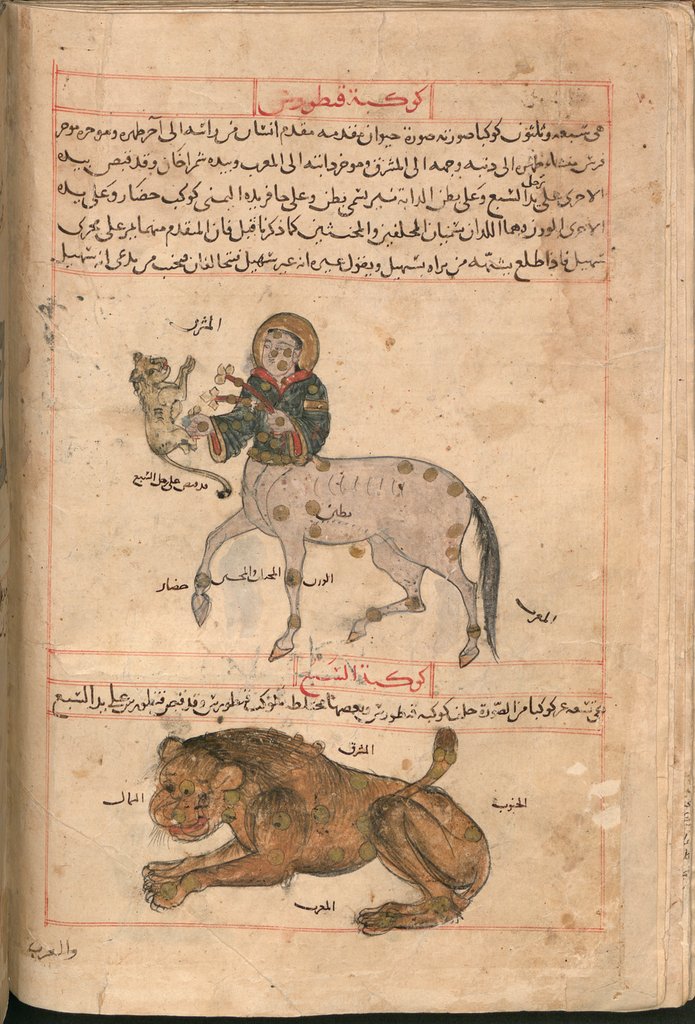 كوكبة قنطورس
هي سبعه وثلثون كوكبا صورته صورة حيوان مقدمه مقدم انسان من راسه الى آخر ظهره وموخره موخر
فرس الى ذنبه وجهه الى المشرق وموخر دابته الى المغرب وبيده شمراخان وقد قبض بيده
الاخرى على رجل السبع وعلى بطن الدابة نير يسمى بطن وعلى حافر يده اليمنى كوكب حضار وعلى يده
الاخرى الوزن وهما اللذان يسميان المحلفين والمحنثين كما ذكرنا قبل فان المقدم منهما يمر على مجرى
سهيل فاذا طلع يشبهه من يراه بسهيل ويقول غيره انه غير سهيل فيتحالفان فيحنث من يدعي انه سهيل
المشرق
قد قبض على رجل السبع
بطن
حضار
المحلفين والمحنثين
الوزن
المغرب
كوكبة السبع
هي تسعة عشر كوكبا من الصورة خلف كوكبة قنطورس وبعضها مختلط بكوكبة قنطورس وقد قبض قنطورس على يد السبع
المشرق
الشمال
الجنوب
المغرب
والعرب